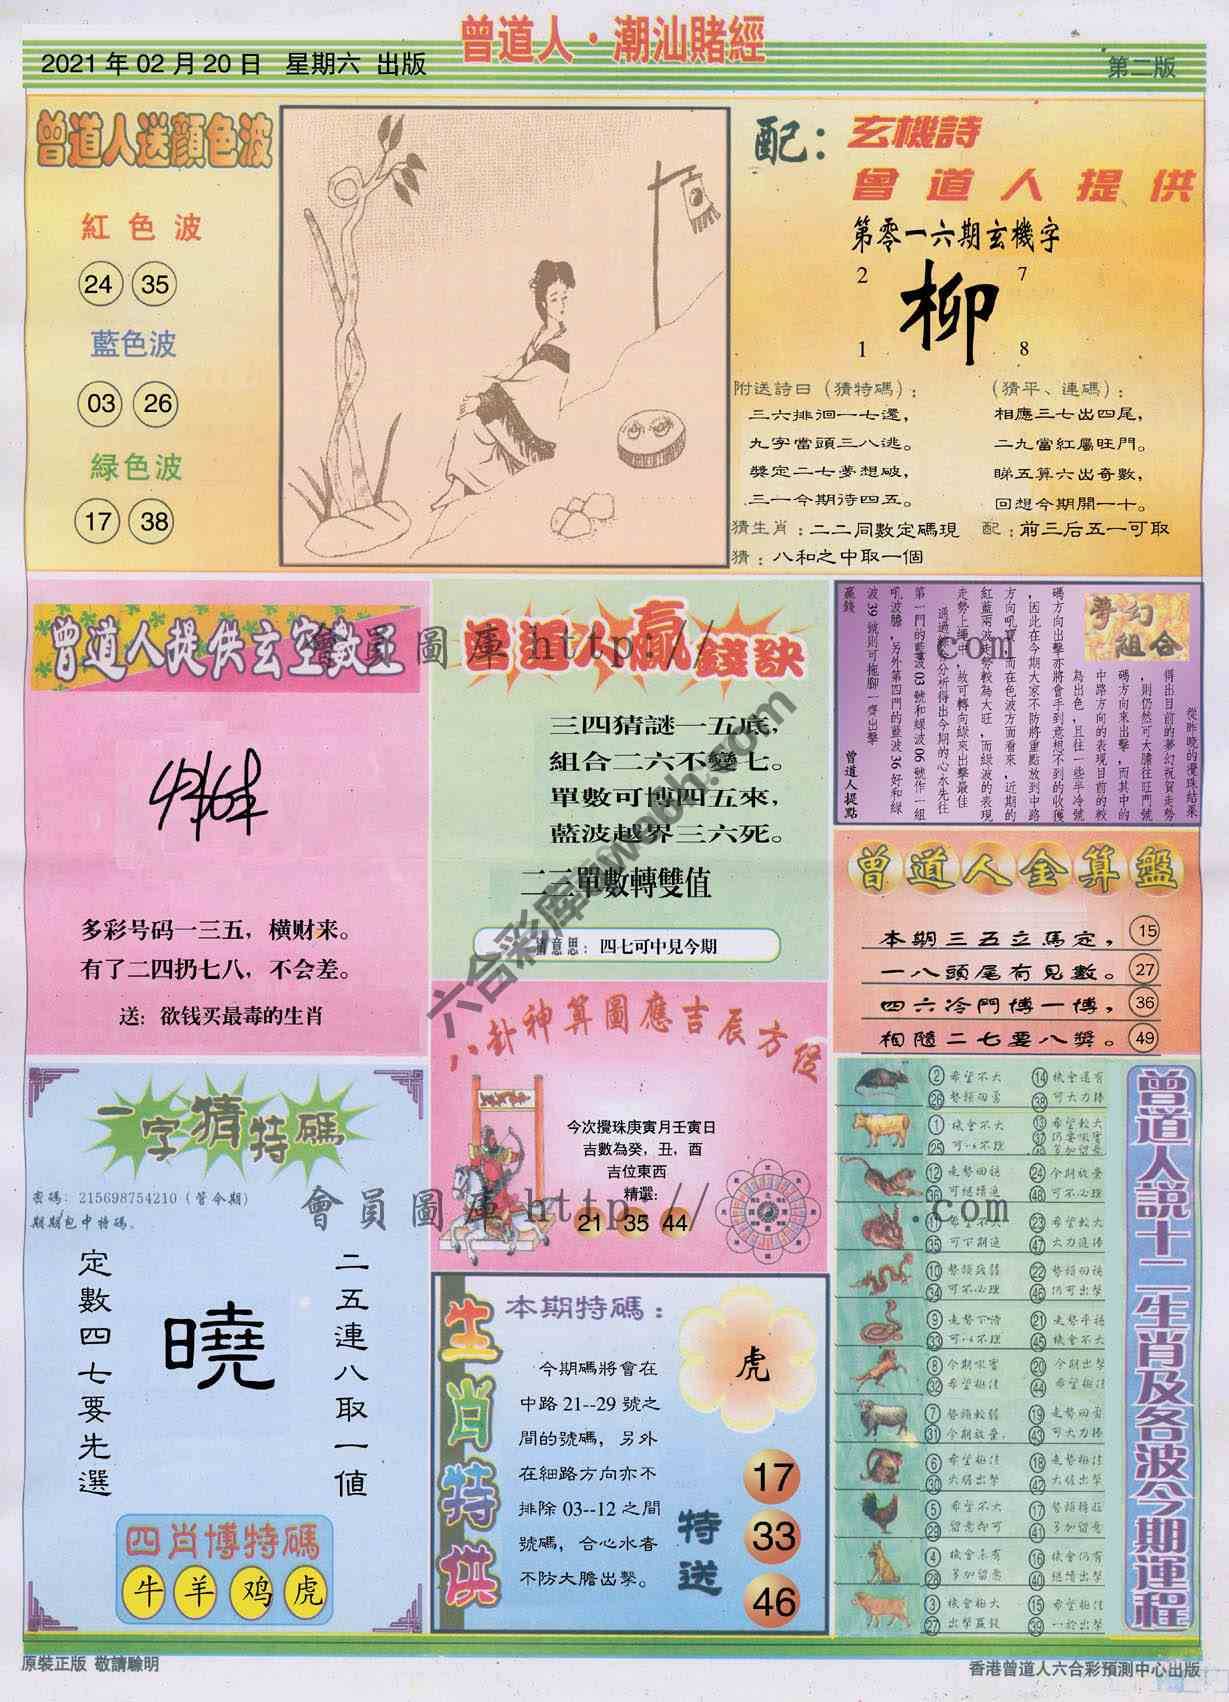 曾道人·潮汕賭經
2021 年 02 月 20 日 星期六 出版
第二版
曾道人送顏色波
紅色波
24 35
藍色波
03 26
緑色波
17 38
配：玄機詩
曾道人提供
第零一六期玄機字
2 7
柳
1 8
附送詩曰（猜特碼）：
三六排徊一七還，
九字當頭三八逃。
獎定二七夢想破，
三一今期待四五。
（猜平、連碼）：
相應三七出四尾，
二九當紅屬旺門。
睇五算六出奇數，
回想今期開一十。
猜生肖：二二同數定碼現 配：前三后五一可取
猜：八和之中取一個
曾道人提供玄空數王
多彩号码一三五，横财来。
有了二四扔七八，不会差。
送：欲钱买最毒的生肖
曾道人贏錢訣
三四猜謎一五底，
組合二六不變七。
單數可博四五來，
藍波越界三六死。
二三單數轉雙值
猜意思：四七可中見今期
夢幻組合
從昨晚的攪珠結果
得出目前的夢幻祝賀走勢
，則仍然可大膽往旺門號
碼方向來出擊，而其中的
中路方向的表現目前的較
為出色，且往一些半冷號
碼方向出擊亦將會手到意想不到的收獲
，因此在今期大家不防將重點放到中路
方向吼寶，而在色波方面看來，近期的
紅藍兩波走勢較為大旺，而綠波的表現
走勢上纏中，故可轉向綠來出擊最佳
通過綜合分析得出今期的心水先往
第一門的藍波 03 號和綠波 06 號作一組
吼波膽，另外第四門的藍波 36 好和綠
波 39 號則可拖腳一齊出擊
贏錢
曾道人提點
曾道人金算盤
本期三五立馬定， 15
一八頭尾有見數。 27
四六冷門博一博， 36
相隨二七要八獎。 49
八卦神算圖應吉辰方位
今次攪珠庚寅月壬寅日
吉數為癸，丑，酉
吉位東西
精選：
21 35 44
一字猜特碼
密碼：215698754210（管今期）
期期包中特碼。
二五連八取一值
曉
定數四七要先選
四肖博特碼
牛 羊 鸡 虎
生肖特供
本期特碼：
今期碼將會在
中路 21--29 號之
間的號碼，另外
在細路方向亦不
排除 03--12 之間
號碼，合心水者
不防大膽出擊。
虎
特送
17
33
46
曾道人説十二生肖及各波今期運程
② 希望不大 ⑭ 機會還有
㉖ 勢頭回勇 ㊳ 可大力捧
① 機會不大 ⑬ 希望較大
⑫ 走勢回穩 ㉔ 今期放棄
㊱ 可繼續追 ㊽ 可不必理
㉓ 希望較大
㉟ 可下期追 ㊼ 大力追捧
⑩ 勢頭疲弱
㉞ 可不必理 ㊻ 仍可出擊
㉑ 走勢平穩
㊺ 機會不大
⑧ 今期吸實 ⑳ 今期出擊
㉜ 希望極佳 ㊹ 希望極佳
⑦ 勢頭較弱 ⑲ 走勢回勇
㉛ 今期放棄 ㊸ 可大力捧
⑥ 希望極佳 ⑱ 走勢極佳
㉚ 大膽出擊 ㊷ 大膽出擊
⑤ 希望不大 ⑰ 勢頭轉旺
㉙ 留意即可 ㊶ 多加留意
④ 機會未有 ⑯ 機會仍有
㉘ 多加留意 ㊵ 繼續出擊
③ 機會極大 ⑮ 希望極佳
㉗ 出擊贏錢 ㊴ 一於出擊
會員圖庫 http:// .com
會員圖庫 http:// .com
原裝正版 敬請驗明
香港曾道人六合彩預測中心出版